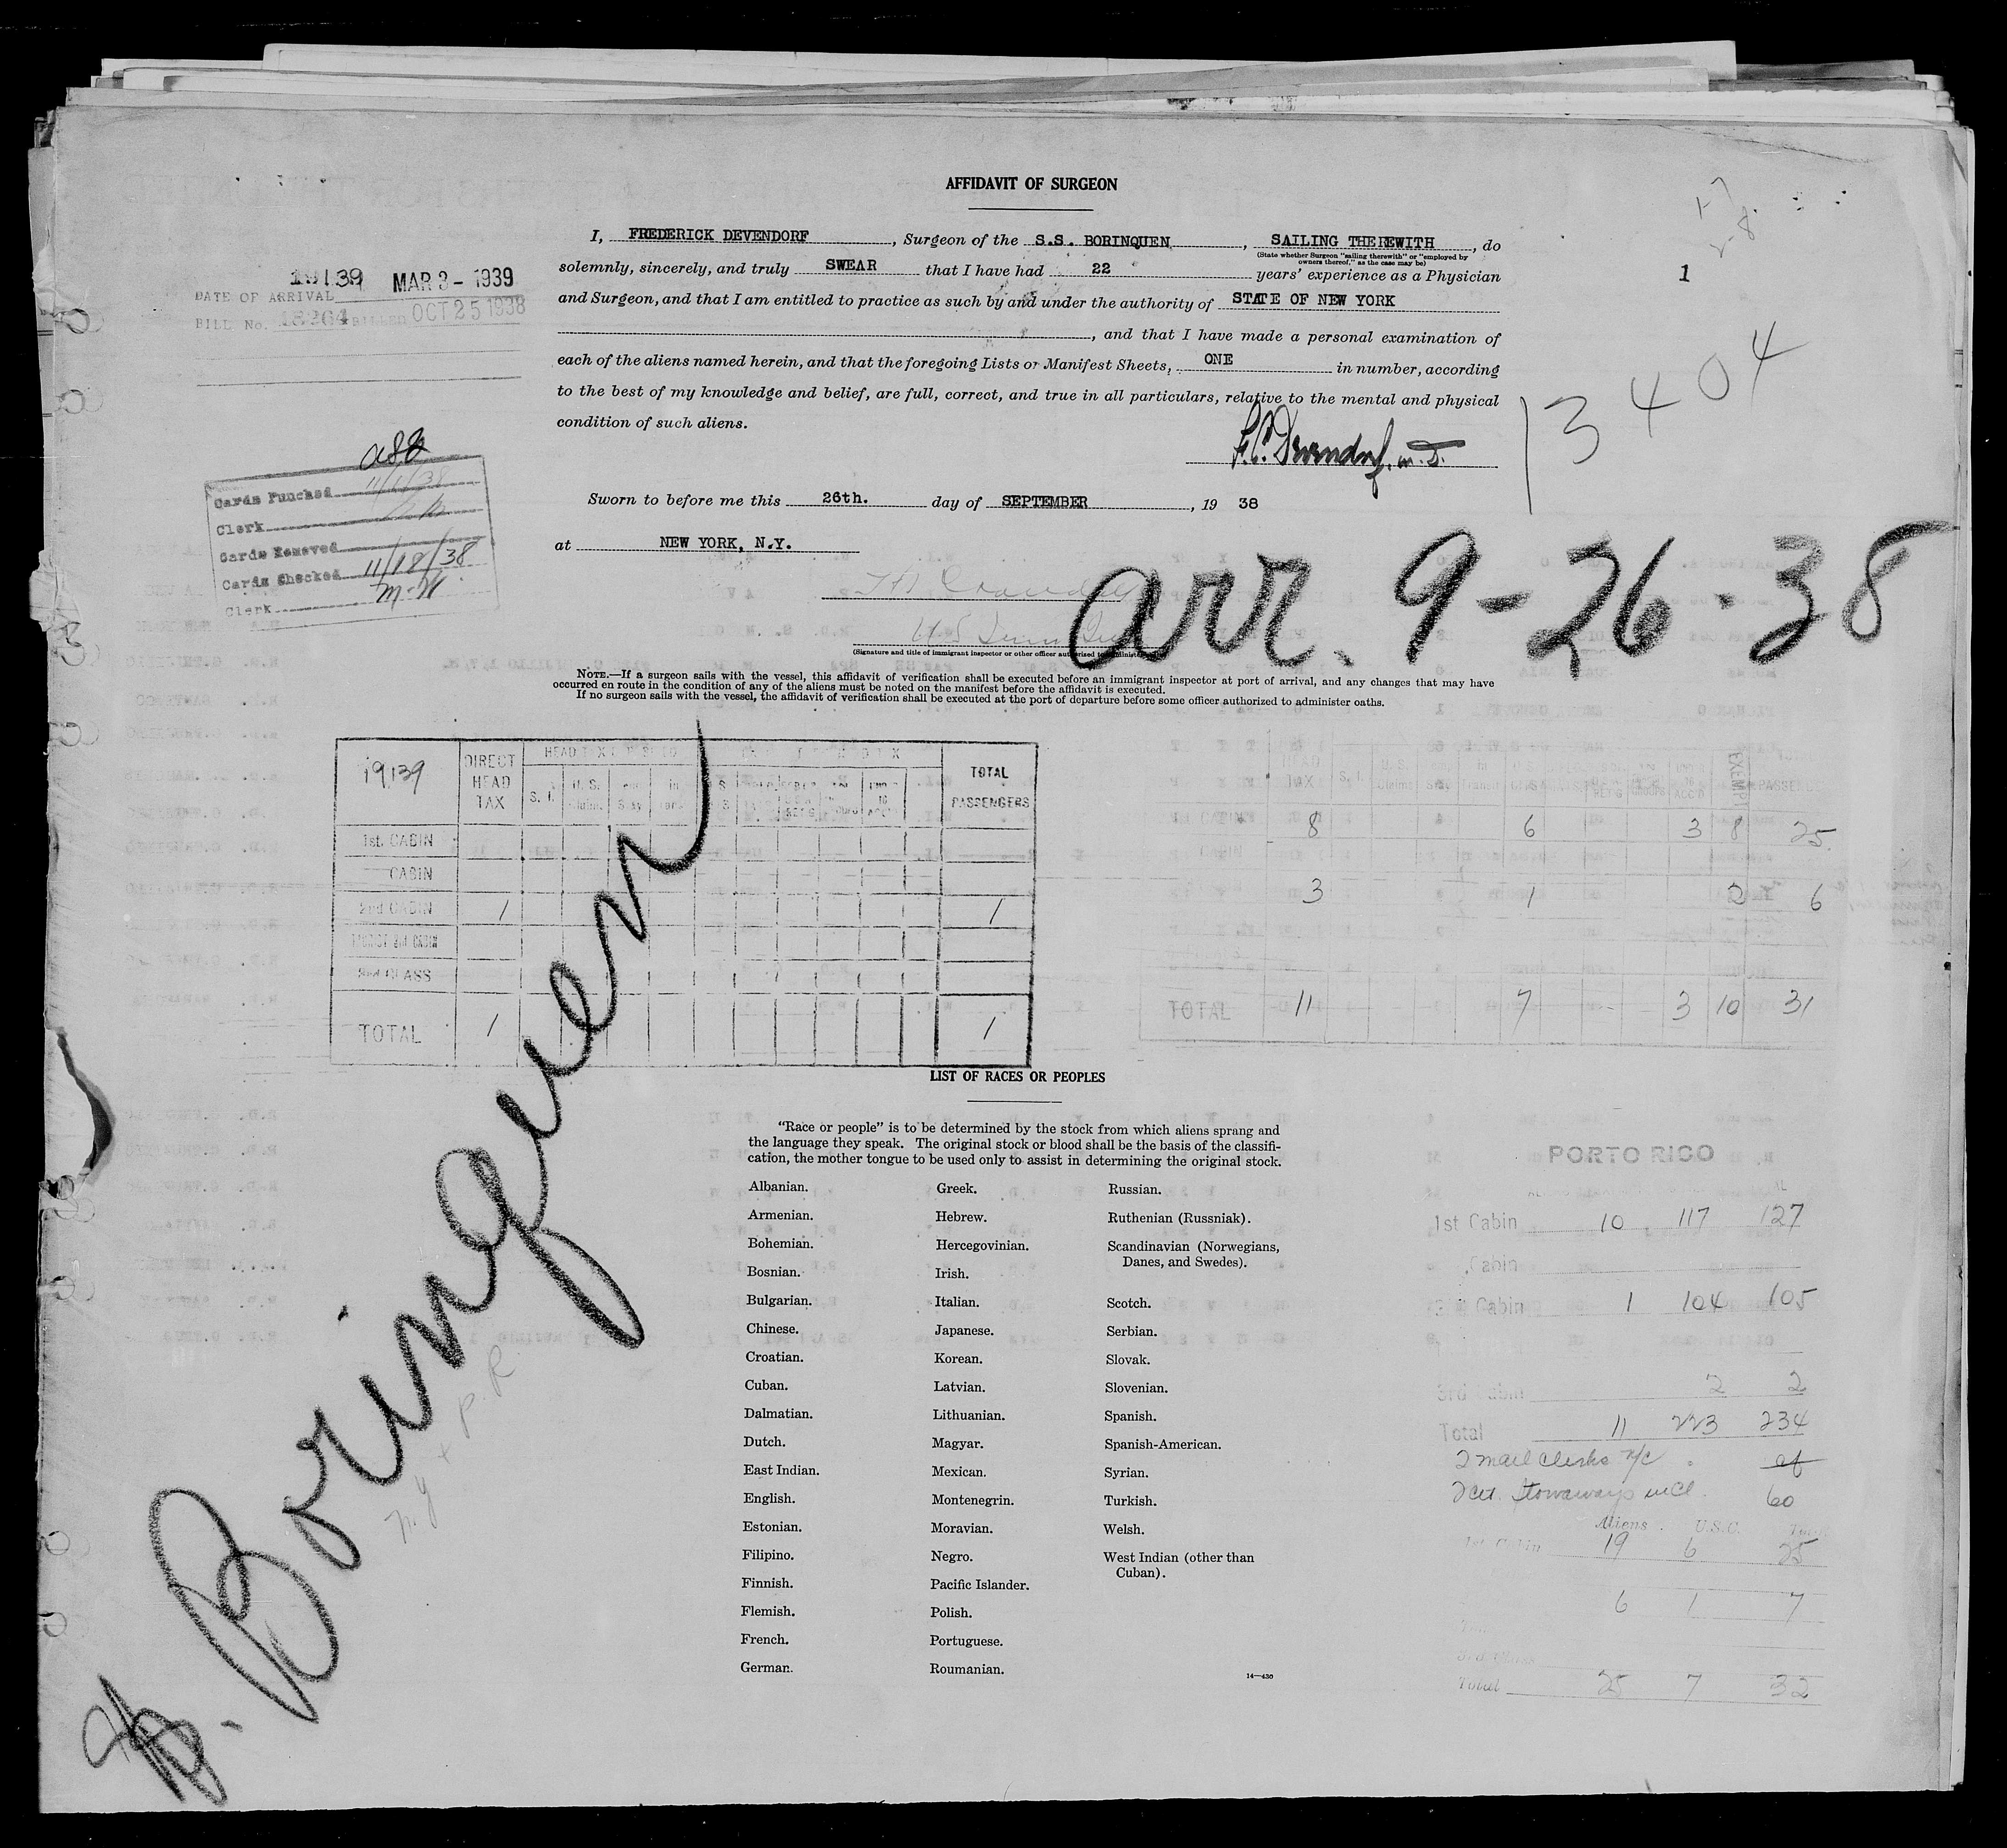 AFFIDAVIT OF SURGEON
I, FREDERICK DEVENDORF, Surgeon of the S.S. BORINQUEN, SAILING THEREWITH, do
(State whether Surgeon "sailing therewith" or "employed by
owners thereof," as the case may be)
solemnly, sincerely, and truly SWEAR that I have had 22 years' experience as a Physician
and Surgeon, and that I am entitled to practice as such by and under the authority of STATE OF NEW YORK
, and that I have made a personal examination of
each of the aliens named herein, and that the foregoing Lists or Manifest Sheets, ONE in number, according
to the best of my knowledge and belief, are full, correct, and true in all particulars, relative to the mental and physical
condition of such aliens.
F.C. Devendorf. M.D.
Sworn to before me this 26th. day of SEPTEMBER, 19 38
at NEW YORK, N.Y.
(Signature and title of immigrant inspector or other officer authorized to administer
NOTE.—If a surgeon sails with the vessel, this affidavit of verification shall be executed before an immigrant inspector at port of arrival, and any changes that may have
occurred en route in the condition of any of the aliens must be noted on the manifest before the affidavit is executed.
If no surgeon sails with the vessel, the affidavit of verification shall be executed at the port of departure before some officer authorized to administer oaths.
1
13404
arr. 9-26-38
19139 MAR 3 - 1939
DATE OF ARRIVAL
BILL No. 18264 BILLED OCT 25 1938
Cards Punched 11/1/38
Clerk
Cards Removed
Cards Checked 11/18/38
Clerk M.H.
19139 DIRECT HEAD TAX TOTAL PASSENGERS
1st. CABIN
CABIN
2nd CABIN 1 1
TOURIST 3rd CABIN
3rd CLASS
TOTAL 1 1
HEAD TAX EXEMPT
8 6 3 8 25
3 1 2 6
TOTAL 11 7 3 10 31
Borinquen
N.Y. + P.R.
LIST OF RACES OR PEOPLES
"Race or people" is to be determined by the stock from which aliens sprang and
the language they speak. The original stock or blood shall be the basis of the classifi-
cation, the mother tongue to be used only to assist in determining the original stock.
Albanian.
Armenian.
Bohemian.
Bosnian.
Bulgarian.
Chinese.
Croatian.
Cuban.
Dalmatian.
Dutch.
East Indian.
English.
Estonian.
Filipino.
Finnish.
Flemish.
French.
German.
Greek.
Hebrew.
Hercegovinian.
Irish.
Italian.
Japanese.
Korean.
Latvian.
Lithuanian.
Magyar.
Mexican.
Montenegrin.
Moravian.
Negro.
Pacific Islander.
Polish.
Portuguese.
Roumanian.
Russian.
Ruthenian (Russniak).
Scandinavian (Norwegians,
Danes, and Swedes).
Scotch.
Serbian.
Slovak.
Slovenian.
Spanish.
Spanish-American.
Syrian.
Turkish.
Welsh.
West Indian (other than
Cuban).
14—436
PORTO RICO
1st Cabin 10 117 127
Cabin
Cabin 1 104 105
3rd Cabin 2 2
Total 11 223 234
2 mail clerks
Stowaways incl. 60
Aliens U.S.C. Total
1st Cabin 19 6 25
6 1 7
Total 25 7 32